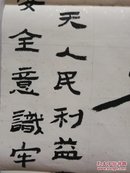 天人民利益
安全意識牢